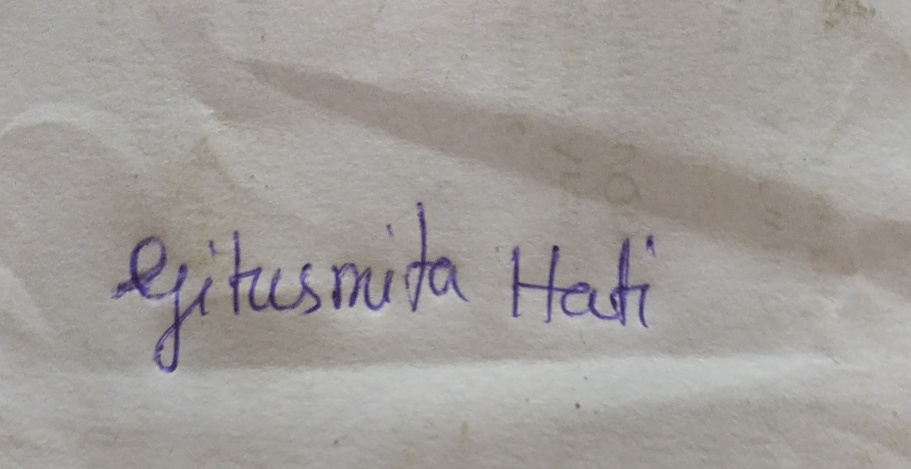 Gitusmita Hati